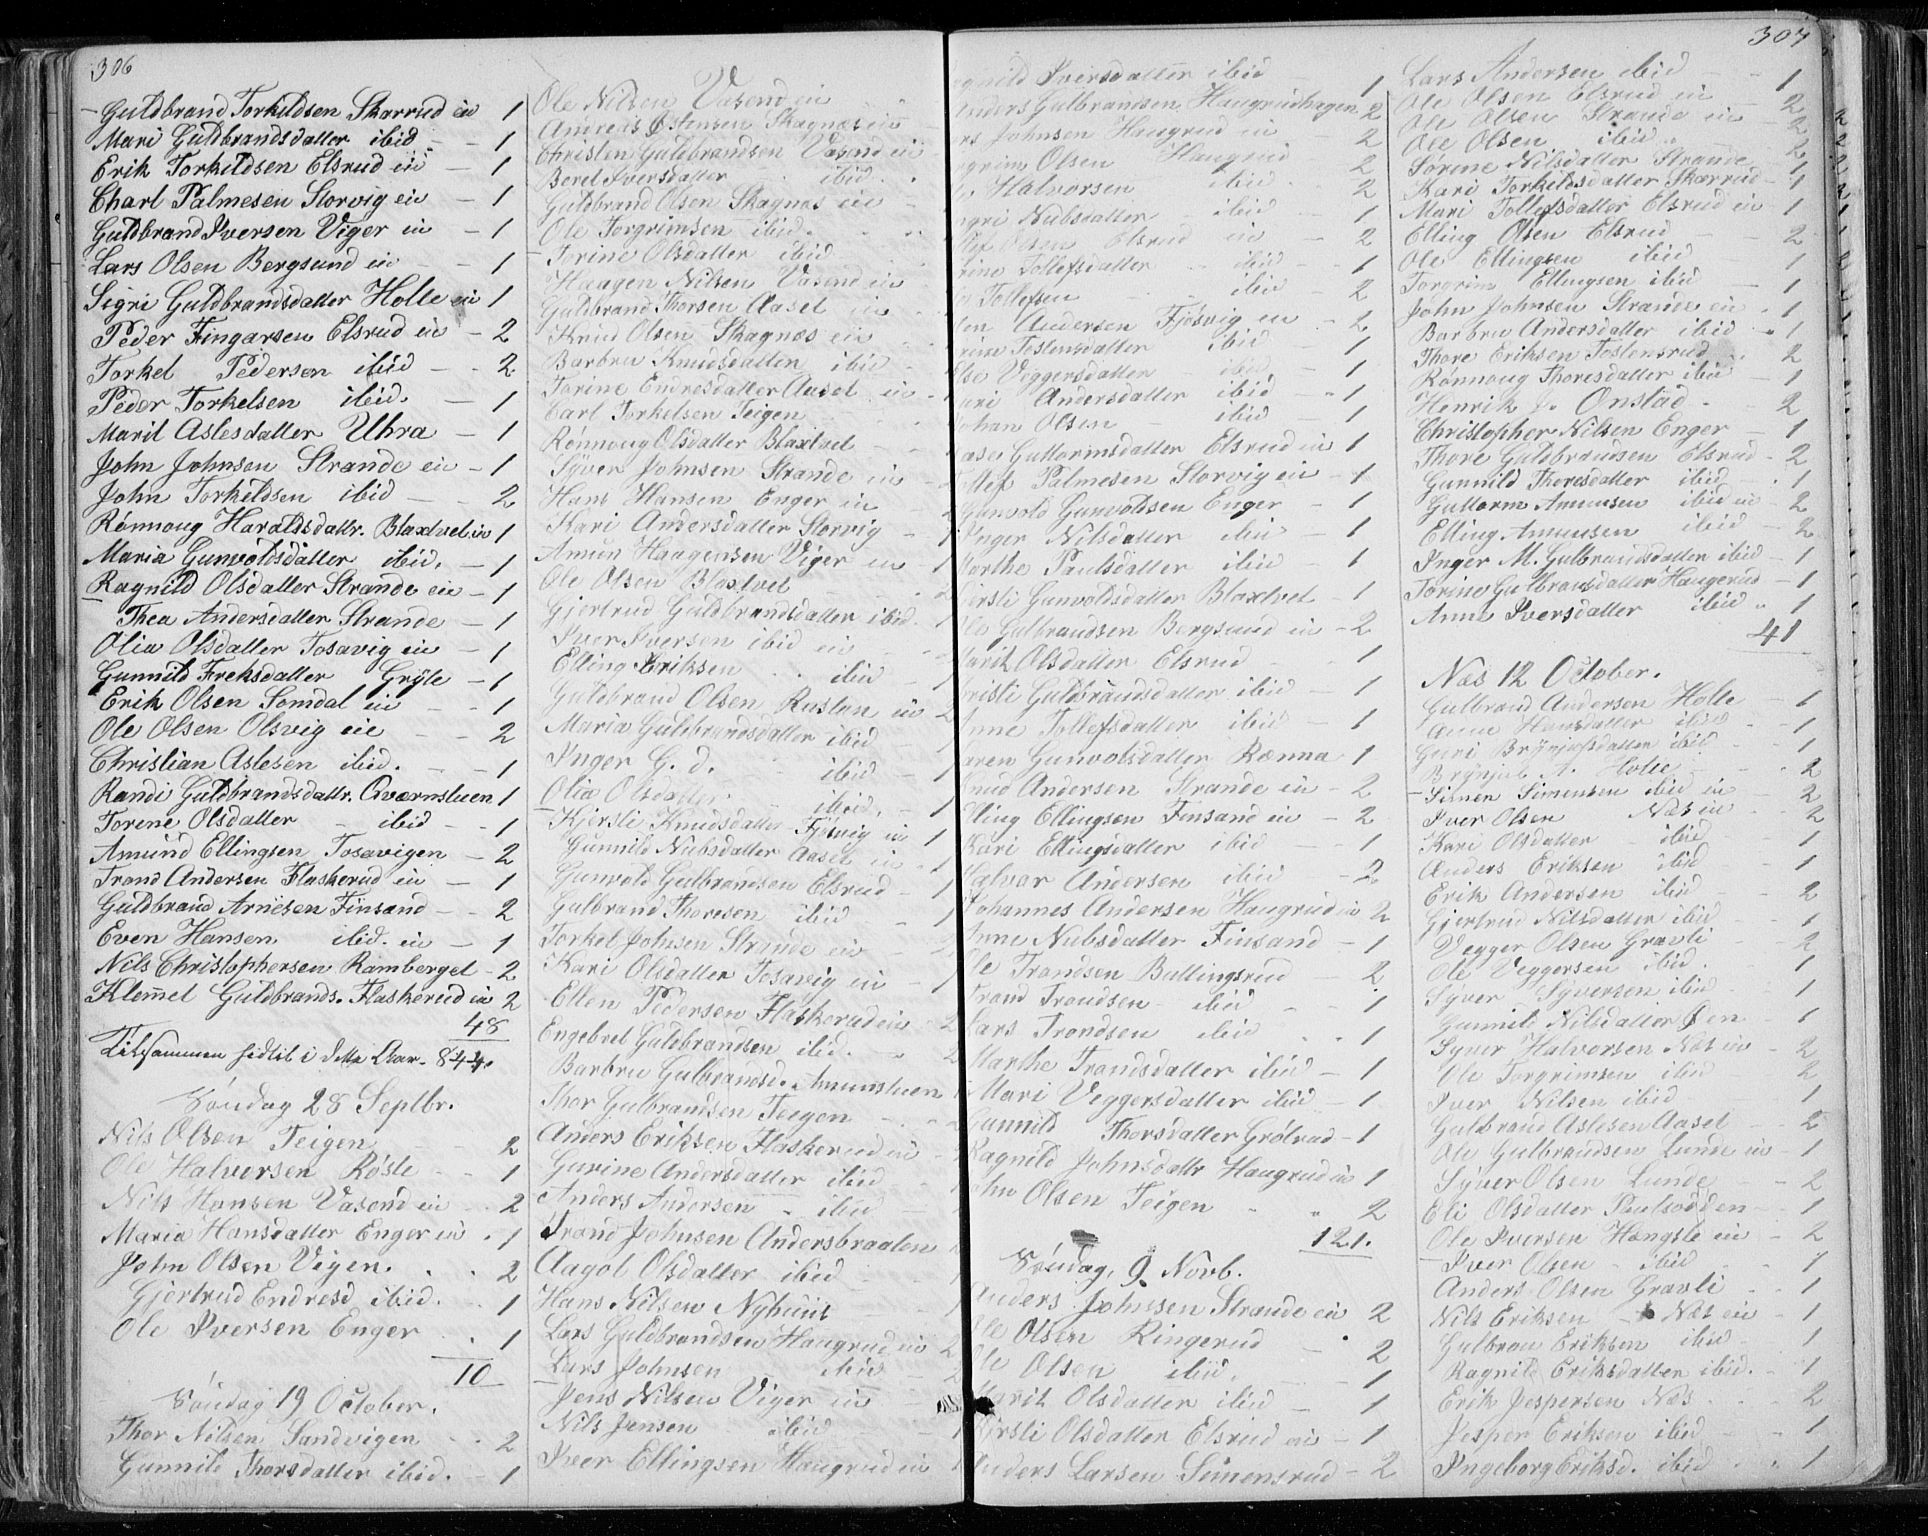 306
Guldbrand Torkildsen Skarrud ein 1
Mari Guldbrandsdatter ibid. - 1
Erik Torkildsen Elsrud ein - 1
Charl Palmesen Storvig ein - 1
Guldbrand Iversen Viger ein - 1
Lars Olsen Bergsund ein - 1
Sigri Guldbrandsdatter Holte ein 1
Peder Fingarsen Elsrud ein - 2
Torkel Pedersen ibid - 2
Peder Torkelsen ibid. - 1
Marit Aslesdatter Uhra - 1
John Johnsen Strande ein - 1
John Torkildsen ibid - 2
Rønnoug Haraldsdattr. Blaxtvet ein 1
Maria Gunvoldsdatter ibid. - 1
Ragnild Olsdatter Strande ein - 1
Thea Andersdatter Strande - 1
Olia Olsdatter Tosavig ein - 1
Gunnild Freksdatter Gryte - 1
Erik Olsen Somdal ein - 1
Ole Olsen Olsvig ein - 2
Christian Aslesen ibid. - 1
Randi Guldbrandsdattr. Qværnstuen 1
Torene Olsdatter - ibid - 1
Amund Ellingsen Tosavigen - 2
Trond Andersen Flaskerud ein - 1
Guldbrand Arnesen Finsand - 2
Even Hansen ibid. ein - 1
Nils Christophersen Ramberget - 2
Klemmet Guldbrands. Flaskerud ein 2
48
Tilsammen hidtil i dette Aar - 844.
Søndag 28 Septbr.
Nils Olsen Teigen 2
Ole Halvorsen Røste - 1
Nils Hansen Vasend ein - 2
Maria Hansdatter Enger ein - 1
John Olsen Vigen. . . 2
Gjertrud Endresd ibid. . 1
Ole Iversen Enger . 1
10
Søndag 19 October.
Thor Nilsen Sandvigen . . 2
Gunnild Thorsdatter ibid. - 1
Ole Nilsen Vasend ein
Andreas Østensen Skagnæs ein
Christen Guldbrandsen Vasend ein
Beret Iversdatter ibid.
Guldbrand Olsen Skagnæs ein
Ole Torgrimsen ibid.
Torine Olsdatter ibid
Haagen Nilsen Vasend ein
Guldbrand Thorsen Aaset ein
Knud Olsen Skagnæs ein
Barbru Knudsdatter ibid
Torine Endresdatter Aaset ein
Carl Torkelsen Teigen
Rønnoug Olsdatter Blaxtvet
Syver Johnsen Strande ein
Hans Hansen Enger ein
Kari Andersdatter Storvig
Amun Haagensen Viger ein
Ole Olsen Blaxtvet
Gjertrud Guldbrandsdatter ibid.
Iver Iversen ibid ein
Elling Eriksen ibid
Guldbrand Olsen Rusten ein
Maria Guldbrandsdatter ibid
Inger G. d. ibid
Olia Olsdatter ibid.
Kjersti Knudsdatter Fjøsvig ein
Gunnild Nubsdatter Aaset ein
Gunvold Gulbrandsen Elsrud
Gulbrand Thoresen ibid
Torkel Johnsen Strande ein
Kari Olsdatter Tosavig ein
Ellen Pedersen Flaskerud ein
Engebret Guldbrandsen ibid.
Barbru Gulbrandsd. Amunstuen
Thor Gulbrandsen Teigen
Anders Eriksen Flaskerud ein
Gurine Andersdatter ibid
Anders Andersen ibid
Trond Johnsen Andersbraaten
Aagot Olsdatter ibid
Hans Nilsen Nyhuus
Lars Guldbrandsen Haugrud ein
Lars Johnsen ibid
Jens Nilsen Viger ein
Nils Jensen ibid
Iver Ellingsen Haugrud ein
307
gnild Iversdatter ibid - 1
Anders Gulbrandsen Haugrudhagen 2
rs Johnsen Haugrud ein - 2
rgrim Olsen Haugrud 2
Halvorsen ibid 2
ngri Nubsdatter ibid - 1
llef Olsen Elsrud ein - 2
rine Tollefsdatter ibid - 1
Tollefsen ibid - 2
en Andersen Fjøsvig ein - 2
rine Tostensdatter ibid - 1
lse Viggersdatter ibid. - 1
ari Andersdatter ibid - 1
ohan Olsen ibid - 1
ase Guttormsdatter Elsrud ein 1
ollef Palmesen Storvig ein - 1
Gunvold Gunvoldsen Enger - 1
Inger Nilsdatter ibid - 1
Marthe Paulsdatter ibid - 1
jersti Gunvoldsdatter Blaxtvet - 1
le Gulbrandsen Bergsund ein - 2
Marit Olsdatter Elsrud - 1
risti Guldbrandsdatter ibid - 1
Anne Tollefsdatter ibid - 1
aren Gunvoldsdatter Rænna - 1
nud Andersen Strande ein - 2
lling Ellingsen Finsand ein - 2
Kari Ellingsdatter ibid - 1
Halvor Andersen ibid - 2
Johannes Andersen Haugrud ein 2
Anne Nubsdatter Finsand - 1
le Trondsen Bullingsrud - 2
Trond Trondsen ibid - 1
Lars Trondsen ibid . 1
Marthe Trondsdatter ibid - 1
Mari Veggersdatter ibid - 1
Gunnild Thorsdatter Grøtrud - 1
Ragnild Johnsdattr Haugrud ein 1
ohn Olsen Teigen 2
121.
Søndag 9 Novb.
Anders Johnsen Strande ein 2
Ole Olsen Ringerud - 2
Ole Olsen ibid. - 1
Marit Olsdatter ibid - 1
jersti Olsdatter Elsrud ein - 1
Anders Larsen Simensrud - 2
Lars Andersen ibid - 1
Ole Olsen Elsrud ein - 2
Ole Olsen Strande ein - 2
Ole Olsen ibid. 2
Sørine Nilsdatter Strande 1
Kari Torkildsdatter Skarrud - 1
Mari Tollefsdatter Elsrud ein - 1
Elling Olsen Elsrud - 2
Ole Ellingsen ibid 1
Torgrim Ellingsen ibid - 1
John Johnsen Strande ein . 1
Barbru Andersdatter ibid . 1
Thore Eriksen Tostensrud . 2
Rønnoug Thoresdatter ibid - 1
Henrik J. Onstad . 2
Christopher Nilsen Enger - 1
Thore Guldbrandsen Elsrud - 2
Gunnild Thoresdatter ibid . 1
Guttorm Amunsen ibid ein - 2
Elling Amunsen ibid - 2
Inger M. Gulbrandsdatter ibid - 1
Torine Gulbransdatter Haugerud - 1
Anne Iversdatter ibid . 1
41
Næs 12 October.
Gulbrand Andersen Holte - 1
Anne Hansdatter ibid . 1
Guri Brynjulfsdatter ibid - 1
Brynjul A. Holte 2
Simen Simensen ibid ein - 2
Iver Olsen Næs ein - 2
Kari Olsdatter ibid - 1
Anders Eriksen ibid 1
Erik Andersen ibid - 2
Gjertrud Nilsdatter ibid - 1
Vegger Olsen Gravli - 2
Ole Veggersen ibid. - 1
Syver Syversen ibid - 1
Gunnild Nilsdatter Øen - 1
Syver Halvorsen Næs ein - 2
Ole Torgrimsen ibid - 2
Iver Nilsen ibid 1
Gulbrand Aslesen Aaset - 2
Ole Gulbrandsen Lunde ein - 1
Syver Olsen Lunde - 2
Eli Olsdatter Paulsødden - 1
Ole Iversen Hængsle ein - 2
Iver Olsen ibid - 1
Anders Olsen Gravli . 1
Nils Eriksen Næs ein - 1
Gulbran Eriksen ibid 1
Ragnild Eriksdatter ibid. . 1
Erik Jespersen Næs . . 2
Jesper Eriksen ibid - 1
Ingeborg Eriksd. ibid . . 1